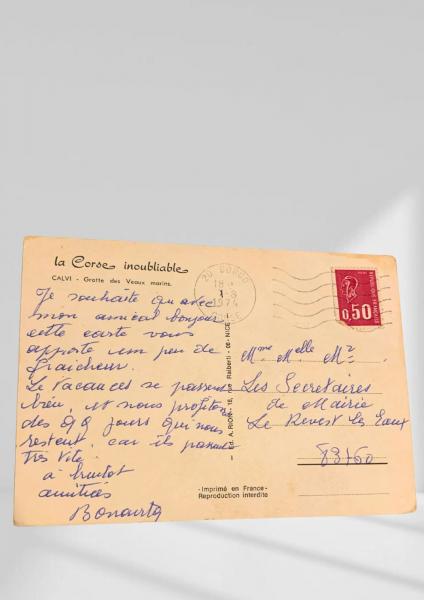 la Corse inoubliable
CALVI - Grotte des Veaux marins.
Je souhaite qu'avec
mon amical bonjour
cette carte vous
apporte un peu de
fraicheur.
Le vacances se passent
bien, et nous profitons
des 8 jours qui nous
restent, car ils passent
très vite.
à bientot
amitiés
20 BORGO
18 H
1-8
1974
CORSE
0,50
REPUBLIQUE FRANCAISE
Mme Melle Mr
Les Secretaires
de Mairie
Le Revest les Eaux
83460
Ed. A. RION - 18, rue Raiberti - 06-NICE
-Imprimé en France-
Reproduction interdite